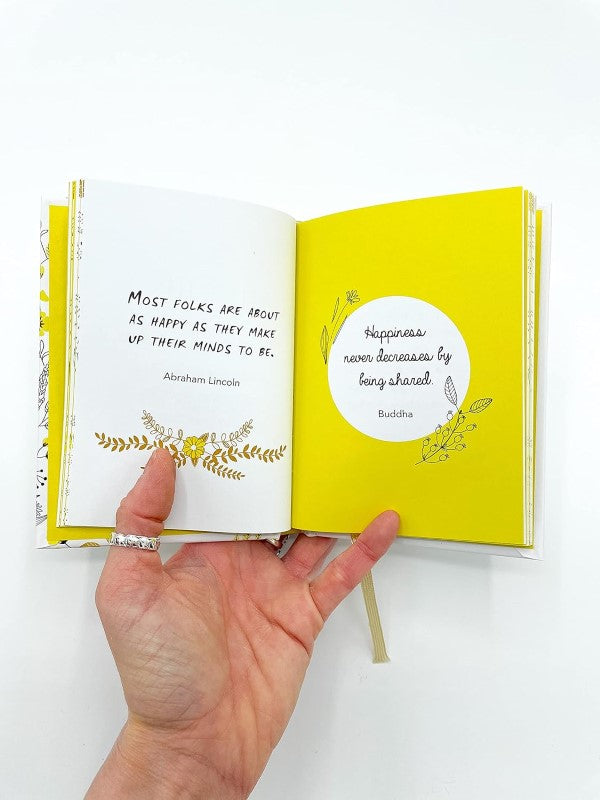 MOST FOLKS ARE ABOUT
AS HAPPY AS THEY MAKE
UP THEIR MINDS TO BE.
Abraham Lincoln
Happiness
never decreases by
being shared.
Buddha